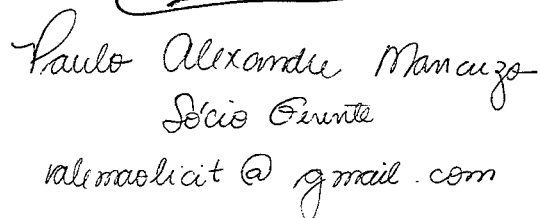 Paulo Alexandre Manarizo
Sócio Gerente
valemaolicit@gmail.com